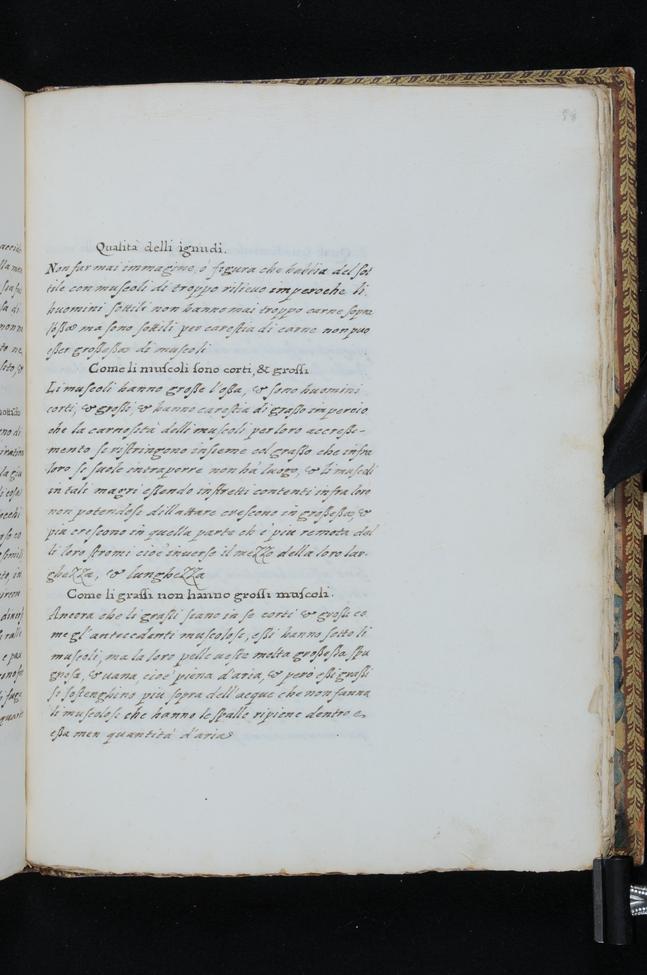 58
Qualità delli ignudi.
Non far mai immagine, ò figura che habbia del sot
tile con muscoli di troppo rilieuo imperoche li
huomini sottili non hanno mai troppo carne sopra
l'ossa ma sono sottili per carestia di carne non puo
esser grossessa di muscoli
Come li muscoli sono corti, & grossi
Li muscoli hanno grosse l'ossa, & sono huomini
corti, & grossi, & hanno carestia di grasso imperoio
che la carnosità delli muscoli per loro accressi-
mento se ristringono insieme et grasso che infra
loro se suole intraporre non hà luogo, & li muscoli
in tali magri essendo infretti contenti infra loro
non potendose dillattare crescono in grossessa, &
piu crescono in quella parte ch è piu remota dal
li loro stromi cioe inuerso il mezzo della loro lar-
ghezza, & lunghezza
Come li grassi non hanno grossi muscoli.
Ancora che li grassi siano in se corti & grossi co
me gl'antecedenti muscolose, essi hanno sotto li
muscoli, ma la loro pelle ueste molta grossessa spu
gnosa, & uana, cioè piena d'aria, & però essi grassi
se sostenghino piu sopra dell'acque che non fanna
li muscolosi che hanno le spalle ripiene dentro e
essa men quantità d'aria